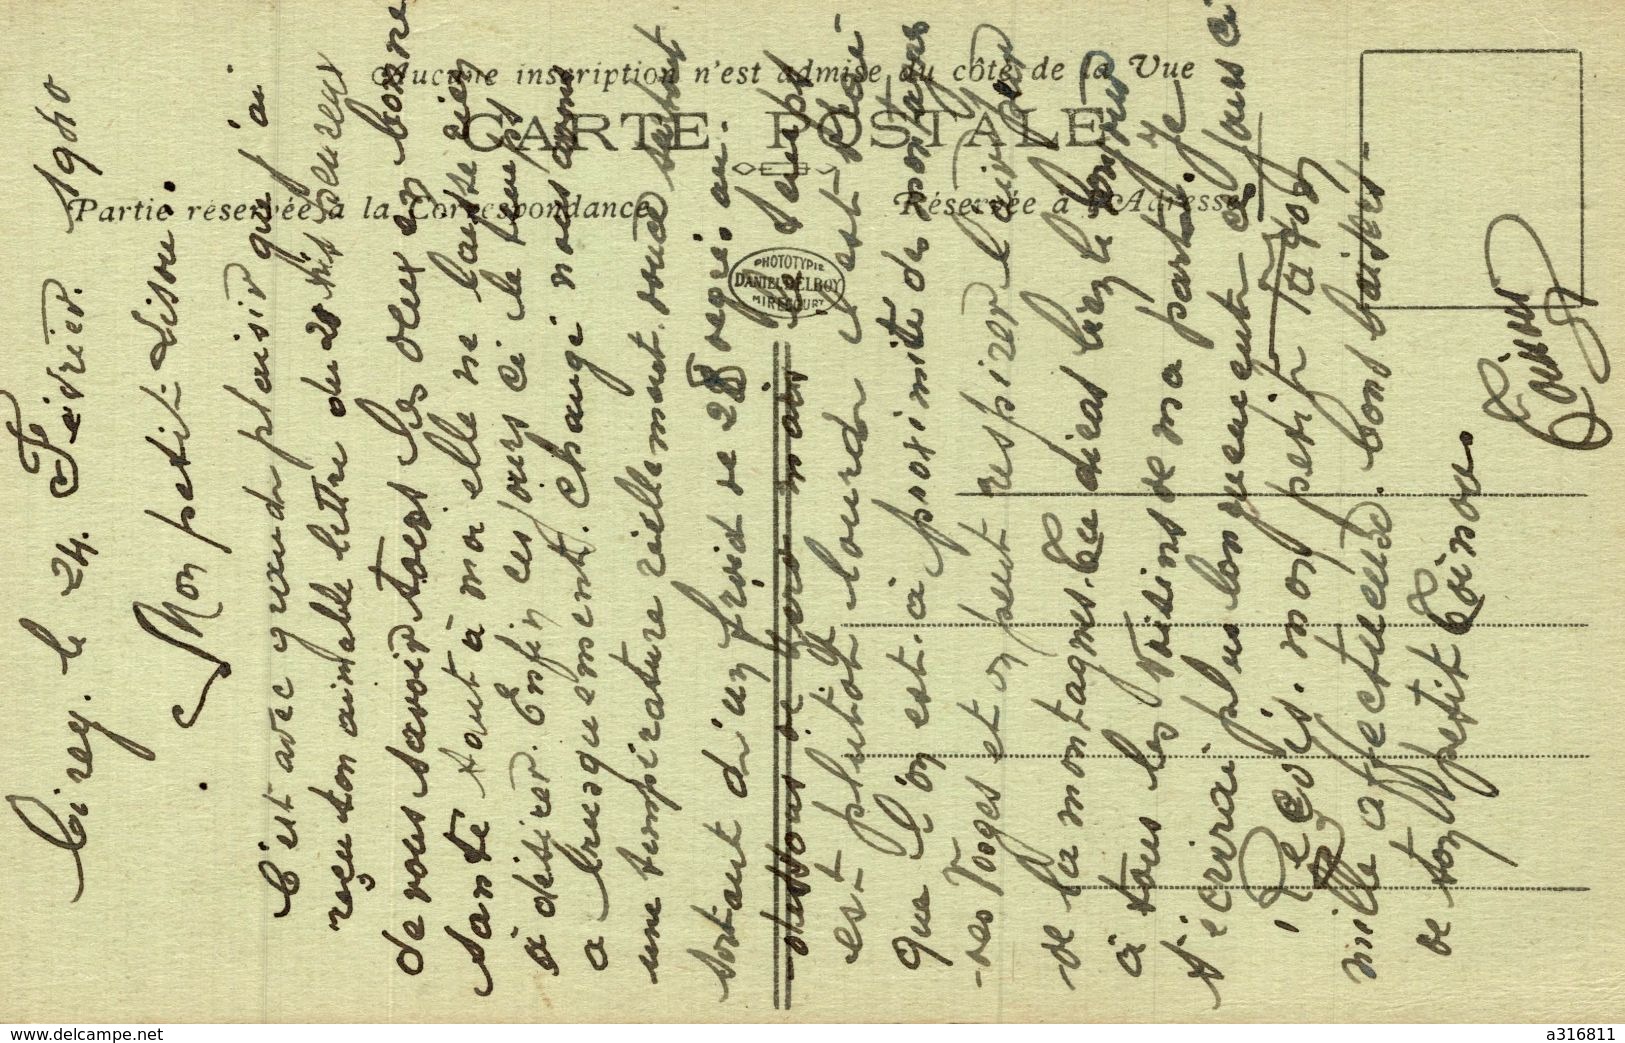 Aucune inscription n'est admise du côté de la Vue
CARTE POSTALE
Partie réservée à la Correspondance
Réservée à l'Adresse
PHOTOTYPIE
DANIEL DELROY
MIRECOURT
Cirey. le 24. Février. 1940
Mon petit Lison.
C'est avec grand plaisir que j'ai
reçu ton aimable lettre du 20 très heureux
de vous savoir tous les deux en bonne
santé tant à moi elle ne laisse rien
à désirer. Enfin ces jours ci le temps
a brusquement. changé nous avons
une température réellement douce surtout
sortant d'un froid de 28 degrés au.
dessous de zero mais le temps
est plutôt lourd il est vrai
que l'on est. à proximité des montagnes
des Vosges et on peut respirer l'air pur
de la montagne. Tu diras bien le bonjour
à tous les voisins de ma part. Je
t'écrirai plus longuement ces jours ci
Reçois. mon petit
mille affectueux. bons baisers
de ton petit